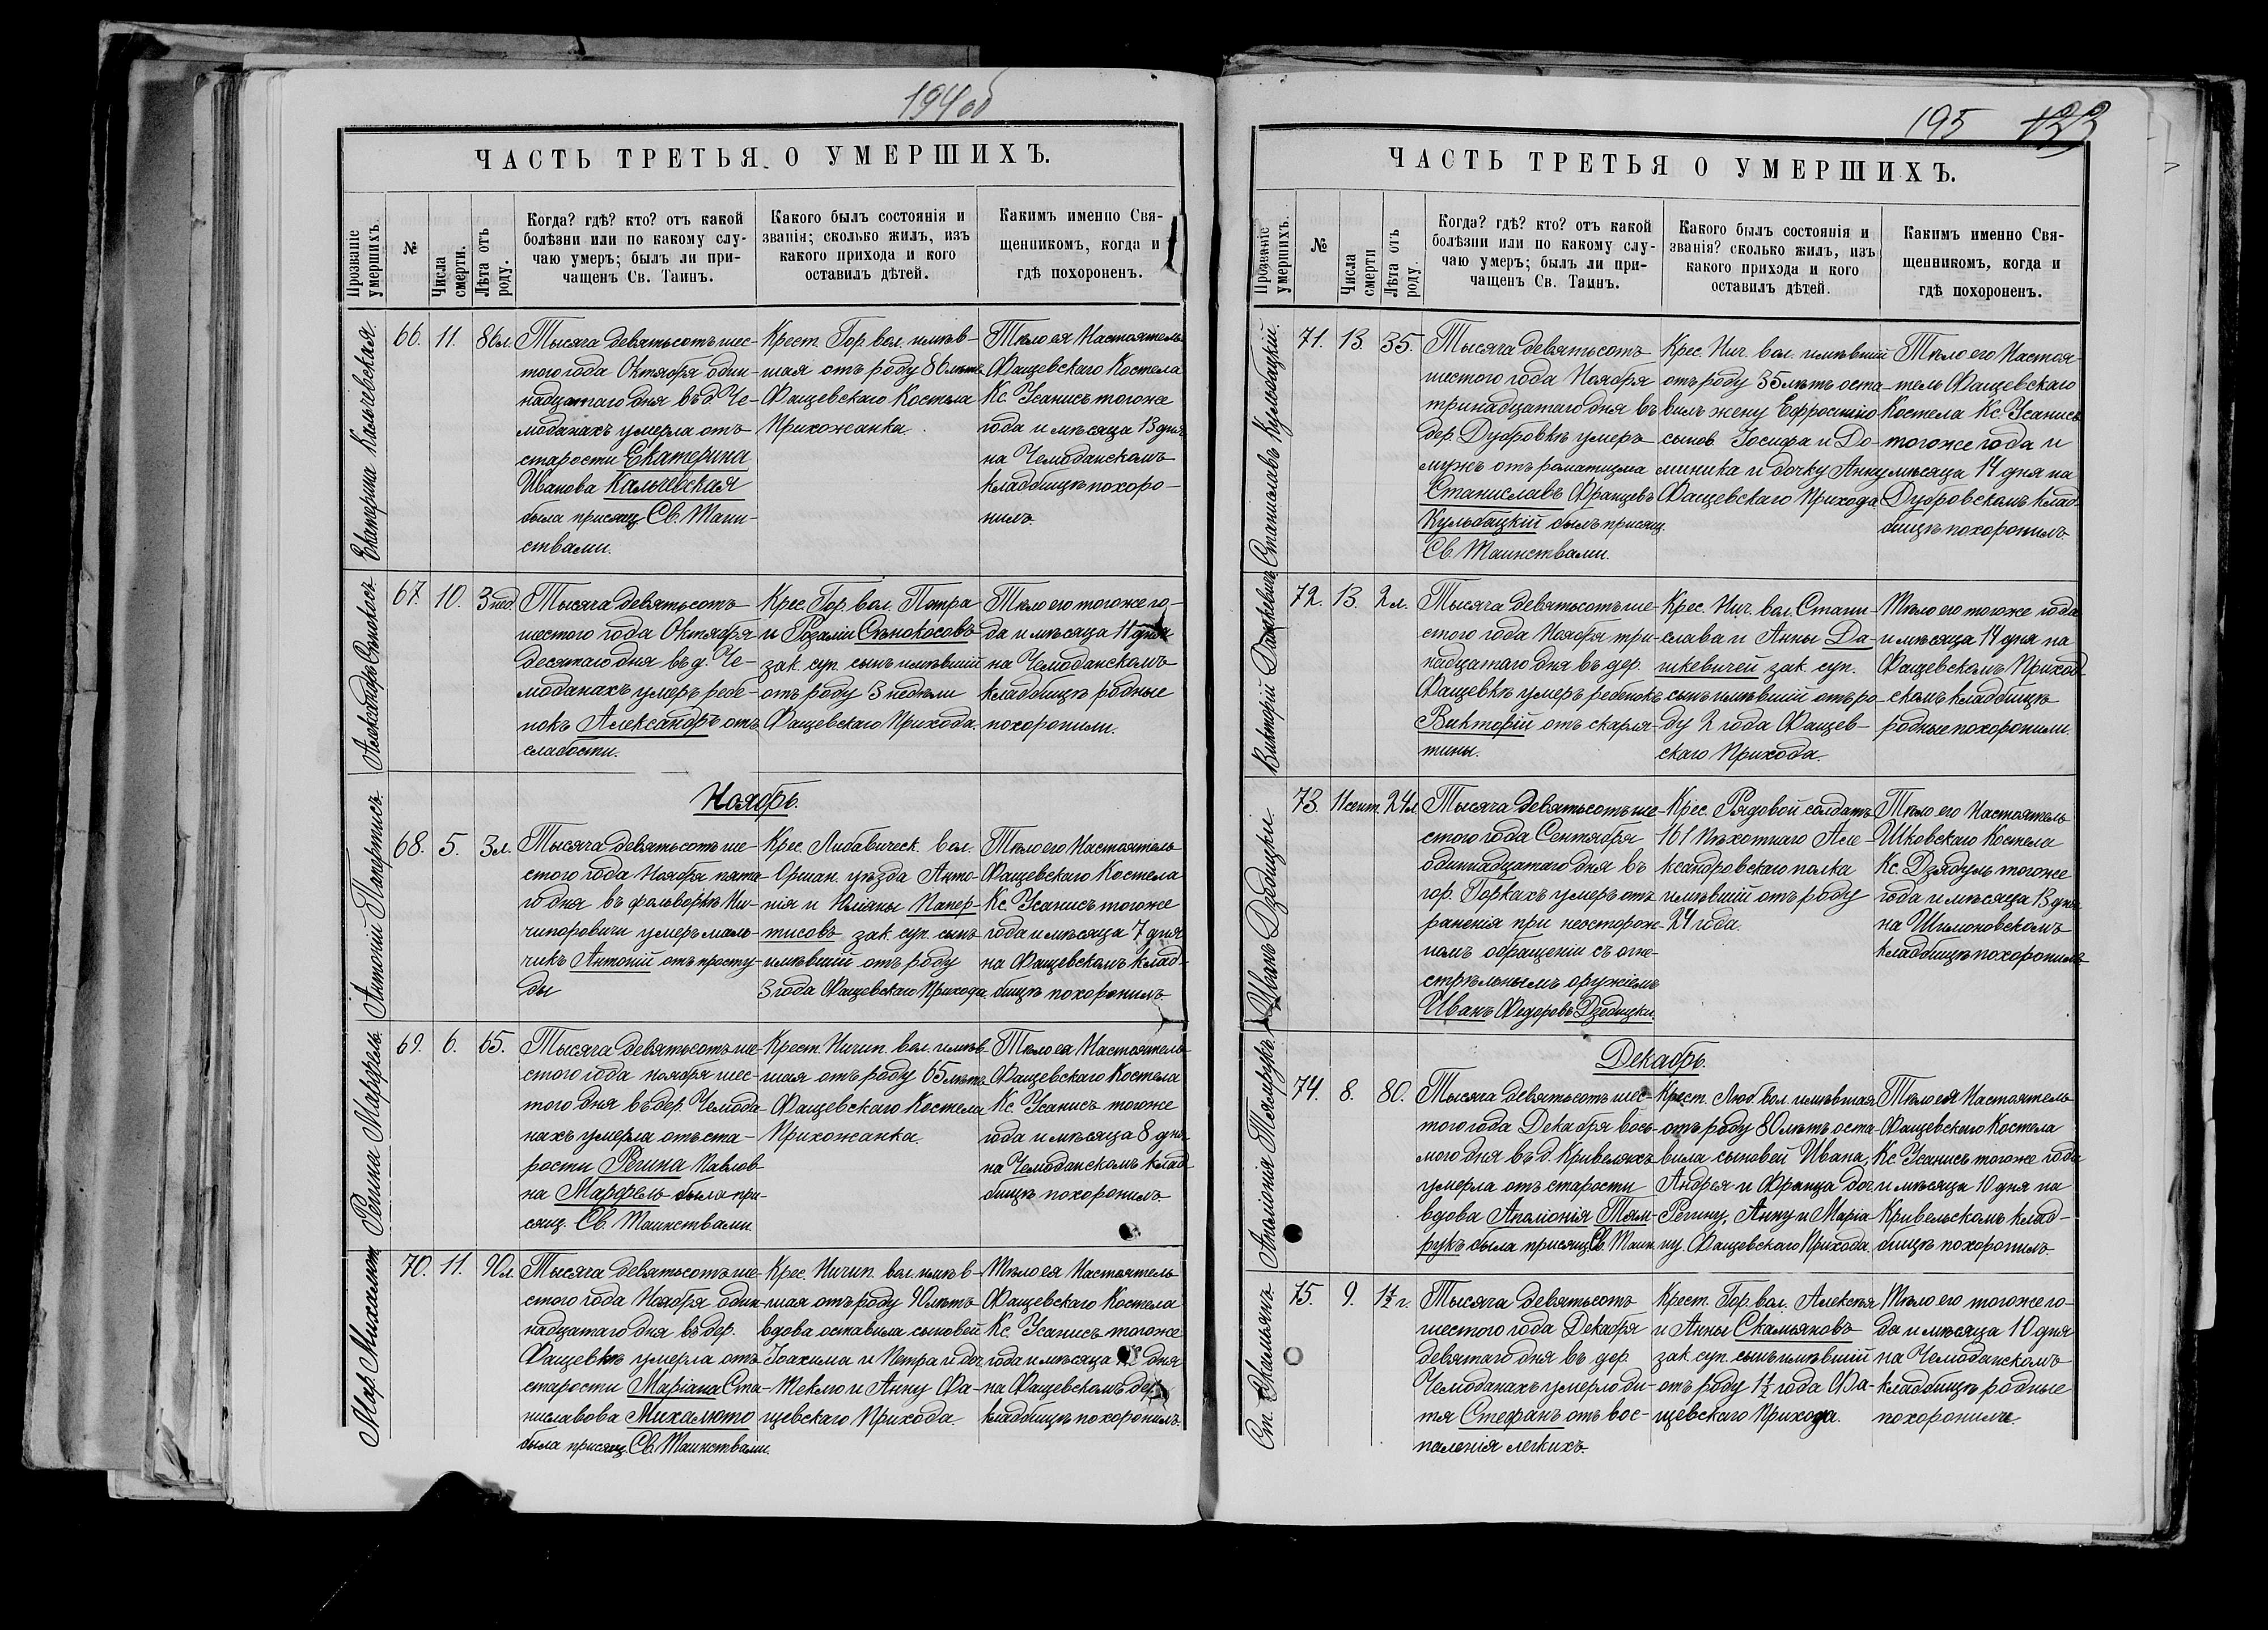 194об
ЧАСТЬ ТРЕТЬЯ О УМЕРШИХЪ.
Прозваніе умершихъ.
№
Числа смерти.
Лѣта отъ роду.
Когда? гдѣ? кто? отъ какой
болѣзни или по какому слу-
чаю умеръ; былъ ли при-
чащенъ Св. Таинъ.
Какого былъ состоянія и
званія; сколько жилъ, изъ
какого прихода и кого
оставилъ дѣтей.
Какимъ именно Свя-
щенникомъ, когда и
гдѣ похороненъ.
Екатерина Кальчевская.
66. 11. 86л.
Тысяча девятьсотъ шес-
того года Октября один-
надцатаго дня въ д. Че-
моданахъ умерла отъ
старости Екатерина
Иванова Кальчевская
была присащ Св. Таин-
ствами.
Крест. Гор. вол. имѣв-
шая отъ роду 86 лѣтъ
Фащевскаго Костела
Прихожанка.
Тѣло ея Настоятель
Фащевскаго Костела
Кс. Усанисъ тогоже
года и мѣсяца 13 дня
на Чемоданскомъ
кладбищѣ похоро-
нилъ.
Александръ Сѣнокосъ.
67. 10. 3 нед.
Тысяча девятьсотъ
шестого года Октября
десятаго дня въ д. Че-
моданахъ умеръ ребе-
нокъ Александръ отъ
слабости.
Крес. Гор. вол. Петра
и Розаліи Сѣнокосовъ
зак. суп. сынъ имѣвшій
отъ роду 3 недѣли
Фащевскаго Прихода.
Тѣло его тогоже го-
да и мѣсяца 11 дня
на Чемоданскомъ
кладбищѣ родные
похоронили.
Ноябрь.
Антоній Папертисъ.
68. 5. 3л.
Тысяча девятьсотъ ше-
стого года Ноября пята-
го дня въ фольворкѣ Ни-
чипоровичи умеръ маль-
чикъ Антоній отъ просту-
ды
Крес. Либавическ. вол.
Оршан. уѣзда Анто-
нія и Юліаны Папер-
тисовъ зак. суп. сынъ
имѣвшій отъ роду
3 года Фащевскаго Прихода
Тѣло его Настоятель
Фащевскаго Костела
Кс. Усанисъ тогоже
года и мѣсяца 7 дня
на Фащевскомъ клад-
бищѣ похоронилъ
Регина Марфель.
69. 6. 65.
Тысяча девятьсотъ ше-
стого года ноября шес-
того дня въ дер. Чемода-
нахъ умерла отъ ста-
рости Регина Павлов-
на Марфель была при-
сащ. Св. Таинствами.
Крест. Ничип. вол. имѣв-
шая отъ роду 65 лѣтъ
Фащевскаго Костела
Прихожанка.
Тѣло ея Настоятель
Фащевскаго Костела
Кс. Усанисъ тогоже
года и мѣсяца 8 дня
на Чемоданскомъ клад-
бищѣ похоронилъ.
Мар. Михалюто
70. 11. 90л.
Тысяча девятьсотъ ше-
стого года Ноября один-
надцатаго дня въ дер.
Фащевкѣ умерла отъ
старости Маріана Ста-
ниславова Михалюто
была присащ. Св. Таинствами.
Крес. Ничип. вол. имѣв-
шая отъ роду 90 лѣтъ
вдова оставила сыновей
Іоахима и Петра и доч.
Теклю и Анну Фа-
щевскаго Прихода.
Тѣло ея Настоятель
Фащевскаго Костела
Кс. Усанисъ тогоже
года и мѣсяца дня
на Фащевскомъ дер.
кладбищѣ похоронилъ.
195 133
ЧАСТЬ ТРЕТЬЯ О УМЕРШИХЪ.
Прозваніе умершихъ.
№
Числа смерти
Лѣта отъ роду.
Когда? гдѣ? кто? отъ какой
болѣзни или по какому слу-
чаю умеръ; былъ ли при-
чащенъ Св. Таинъ.
Какого былъ состоянія и
званія? сколько жилъ, изъ
какого прихода и кого
оставилъ дѣтей.
Какимъ именно Свя-
щенникомъ, когда и
гдѣ похороненъ.
Станиславъ Кульбацкій.
71. 13. 35.
Тысяча девятьсотъ
шестого года Ноября
тринадцатаго дня въ
дер. Дубровкѣ умеръ
мужъ отъ роматизма
Станиславъ Францевъ
Кульбацкій былъ присащ.
Св. Таинствами.
Крес. Нич. вол. имѣвшій
отъ роду 35 лѣтъ оста-
вилъ жену Ефросинію
сынов. Іосифа и До-
миника и дочку Анну
Фащевскаго Прихода
Тѣло его Настоя
тель Фащевскаго
Костела Кс. Усанисъ
тогоже года и
мѣсяца 14 дня на
Дубровскомъ клад-
бищѣ похоронилъ.
Викторій Дашкевичъ
72. 13. 2л.
Тысяча девятьсотъ ше-
стого года Ноября три-
надцатаго дня въ дер.
Фащевкѣ умеръ ребенокъ
Викторій отъ скарля-
тины.
Крес. Нич. вол. Стани-
слава и Анны Да-
шкевичей зак. суп.
сынъ имѣвшій отъ ро-
ду 2 года Фащев-
скаго Прихода.
Тѣло его тогоже года
и мѣсяца 14 дня на
Фащевскомъ Приход-
скомъ кладбищѣ
родные похоронили.
Иванъ Дзедицки.
73. 11 сент. 24л.
Тысяча девятьсотъ ше-
стого года Сентября
одиннадцатаго дня въ
гор. Горкахъ умеръ отъ
раненія при неосторож-
номъ обращеніи съ огне-
стрѣльнымъ оружіемъ
Иванъ Федоровъ Дзедицки.
Крес. Рядовой солдатъ
161 Пѣхотнаго Але-
ксандровскаго полка
имѣвшій отъ роду
24 года.
Тѣло его Настоятель
Шковскаго Костела
Кс. Дзядуль тогоже
года и мѣсяца 13 дня
на Шимоновскомъ
кладбищѣ похоронилъ.
Декабрь.
Аполіонія Тямрукъ.
74. 8. 80.
Тысяча девятьсотъ шес-
того года Декабря вось-
мого дня въ д. Кривеляхъ
умерла отъ старости
вдова Аполіонія Тям-
рукъ была присащ Св. Таин.
Крест. Люб. вол. имѣвшая
отъ роду 80 лѣтъ оста-
вила сыновей Ивана,
Андрея и Франца доч.
Регину, Анну и Марія-
ну Фащевскаго Прихода.
Тѣло ея Настоятель
Фащевскаго Костела
Кс. Усанисъ тогоже года
и мѣсяца 10 дня на
Кривельскомъ клад-
бищѣ похоронилъ.
Ст. Скамьянъ
75. 9. 1½ г.
Тысяча девятьсотъ
шестого года Декабря
девятаго дня въ дер.
Чемоданахъ умерло ди-
тя Стефанъ отъ вос-
паленія легкихъ.
Крест. Гор. вол. Алексѣя
и Анны Скамьяновъ
зак. суп. сынъ имѣвшій
отъ роду 1½ года Фа-
щевскаго Прихода.
Тѣло его тогоже го-
да и мѣсяца 10 дня
на Чемоданскомъ
кладбищѣ родные
похоронили.